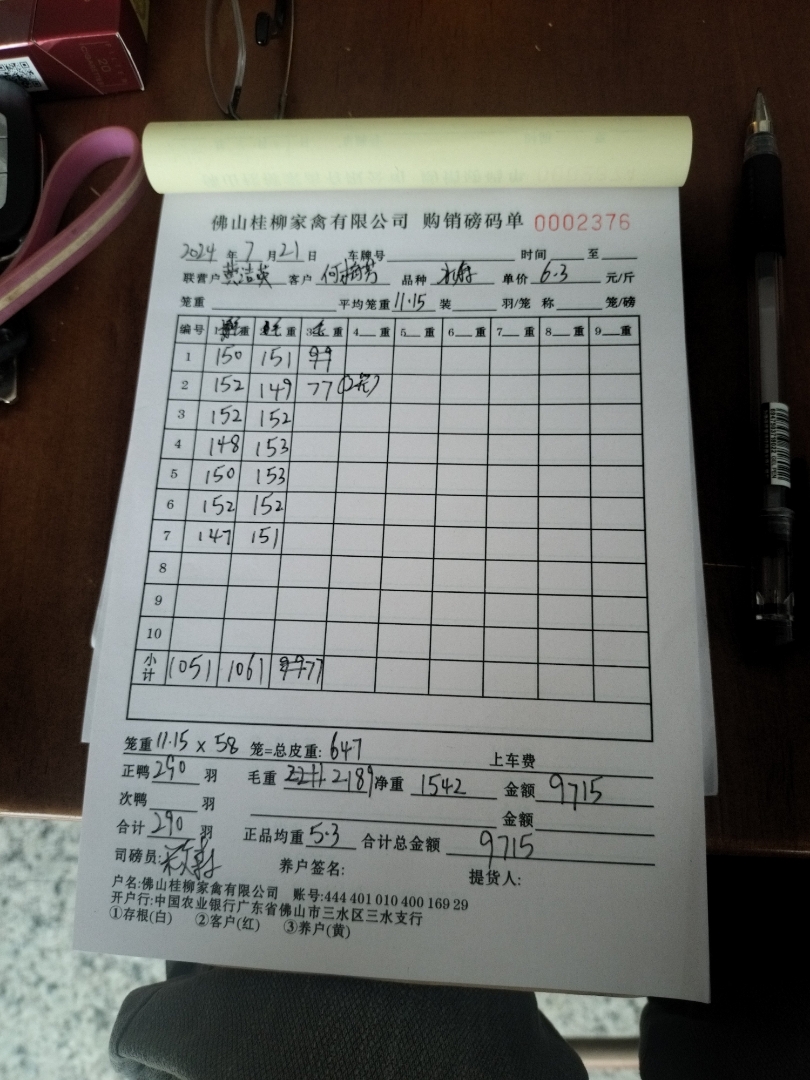 佛山桂柳家禽有限公司 购销磅码单 0002376
2024 年 7 月 21 日 车牌号 时间 至
联营户 客户 品种 单价 6.3 元/斤
笼重 平均笼重 11.15 装 羽/笼 称 笼/磅
编号 1 重 2 重 3 重 4 重 5 重 6 重 7 重 8 重 9 重
1 150 151
2 152 149 77
3 152 152
4 148 153
5 150 153
6 152 152
7 147 151
8
9
10
小计 1051 1061 77
笼重 11.15 x 58 笼=总皮重: 647 上车费
正鸭 290 羽 毛重 2189 净重 1542 金额 9715
次鸭 羽 金额
合计 290 羽 正品均重 5.3 合计总金额 9715
司磅员: 养户签名: 提货人:
户名:佛山桂柳家禽有限公司 账号:444 401 010 400 169 29
开户行:中国农业银行广东省佛山市三水区三水支行
①存根(白) ②客户(红) ③养户(黄)